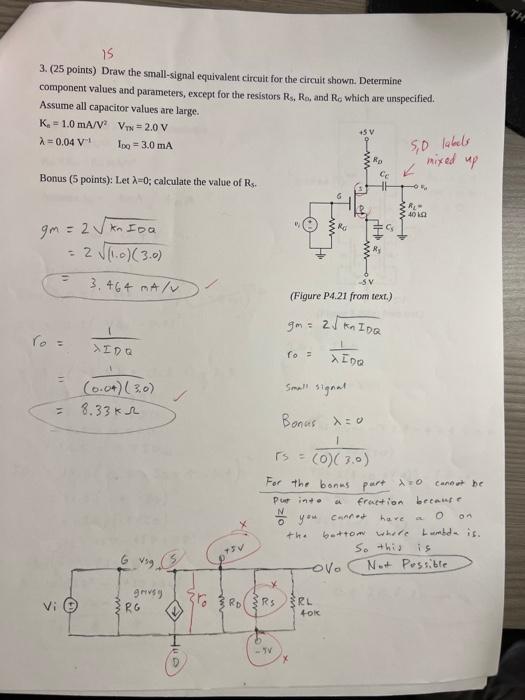 15
3. (25 points) Draw the small-signal equivalent circuit for the circuit shown. Determine
component values and parameters, except for the resistors RS, RD, and RG which are unspecified.
Assume all capacitor values are large.
Kn = 1.0 mA/V² VTN = 2.0 V
λ = 0.04 V⁻¹ IDQ = 3.0 mA
Bonus (5 points): Let λ=0; calculate the value of RS.
+5 V
RD
CC
S
G
D
vo
RL =
40 kΩ
vi
RG
CS
RS
-5 V
S,D labels
mixed up
(Figure P4.21 from text.)
gm = 2√Kn IDQ
= 2√(1.0)(3.0)
= 3.464 mA/V
ro = 1/λIDQ
= 1/(0.04)(3.0)
= 8.33 kΩ
gm = 2√Kn IDQ
ro = 1/λIDQ
Small signal
Bonus λ=0
rs = 1/(0)(3.0)
For the bonus part λ=0 cannot be
put into a fraction because
N/0 you cannot have a 0 on
the bottom where Lambda is.
So this is
Not Possible
G Vsg S
+5V
Vo
Vi
RG
gmvsg
ro
RD
RS
RL
40K
D
-5V